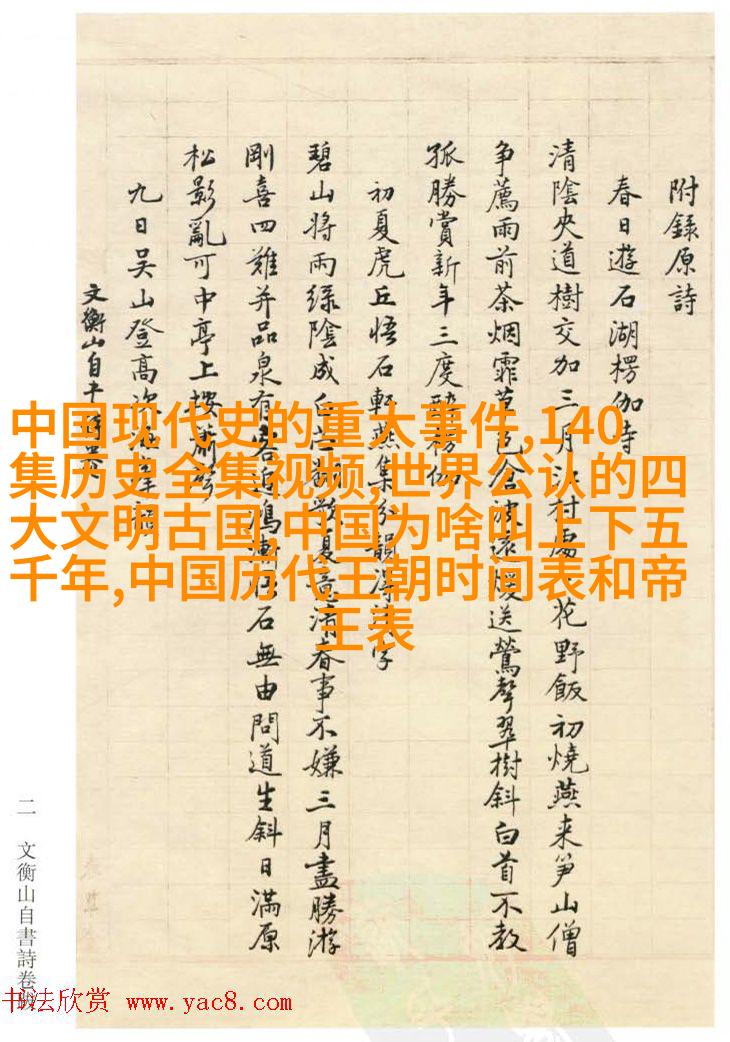 附錄原詩
春日遊石湖楞伽寺
清陰央道樹交加三月村花野飯初燒燕来笋山僧
争薦雨前茶烟霏送鶯聲翠樹斜白首不教
孤勝賞新年三度
初夏虎丘悟石軒燕集分韻得字
碧山将雨绿陰成夏意清春事不嫌三月盡勝游
剛喜四難并品泉有石無由問道生斜日滿原
松影亂可中亭上
九日吳山登高次
文衡山自
二 文衡山自書詩卷
中国现代史的重大事件,140
集历史全集视频,世界公认的四
大文明古国,中国为啥叫上下五
千年,中国历代王朝时间表和帝
王表
书法欣赏 www.yac8.com